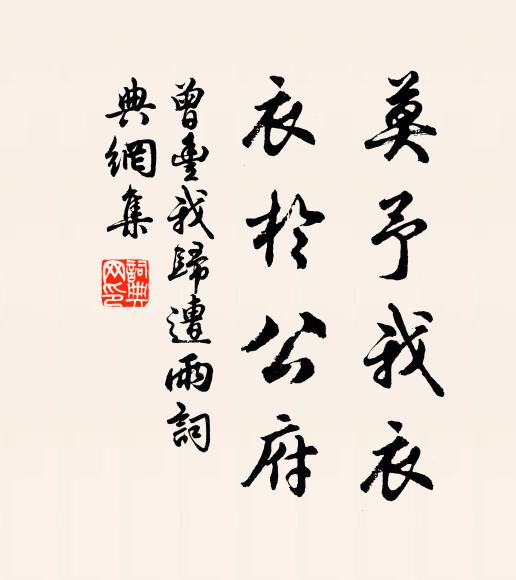 莫予我衣
衣於公府
曾豐我歸遭雨詞
典網集
詞典网印